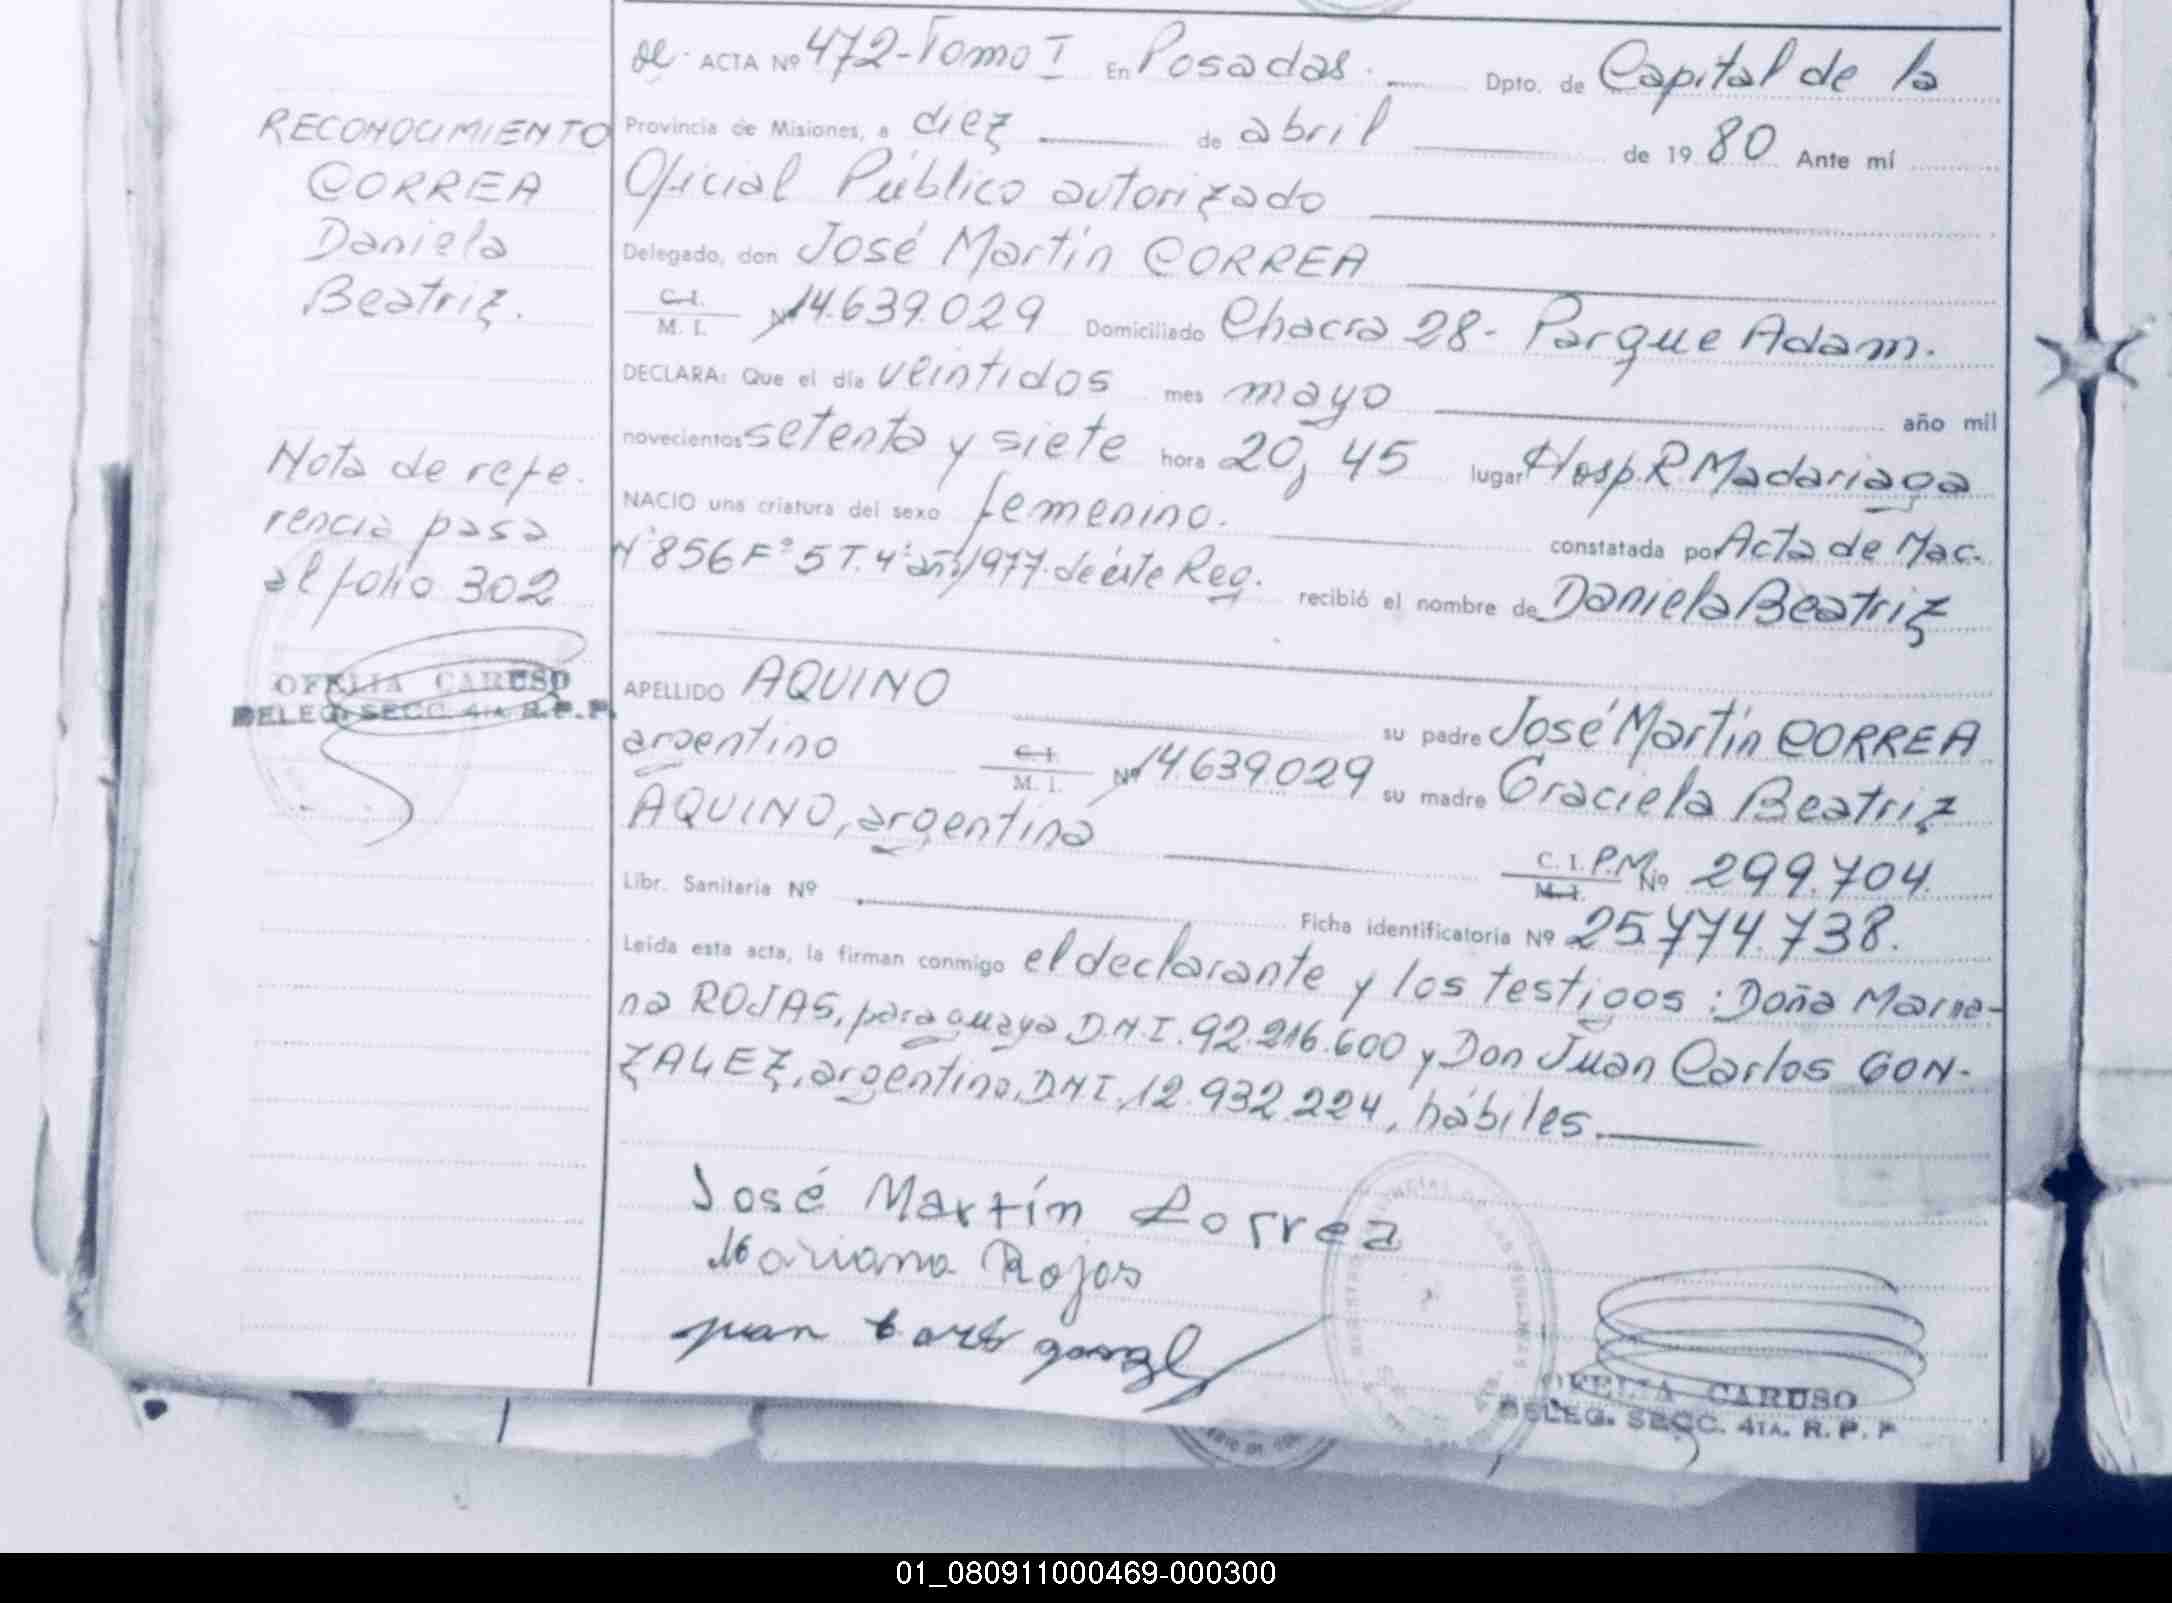 ACTA Nº 472-Tomo I En Posadas. Dpto. de Capital de la
Provincia de Misiones, a diez de abril de 1980 Ante mí
Oficial Público autorizado
Delegado, don José Martín CORREA
C.I. M. I. Nº 14.639.029 Domiciliado Chacra 28- Parque Adam.
DECLARA: Que el día veintidos mes mayo año mil
novecientos setenta y siete hora 20,45 lugar Hosp.R.Madariaga
NACIO una criatura del sexo femenino. constatada por Acta de Nac.
Nº856 Fº 5 T. 4º año/1977. de éste Reg. recibió el nombre de Daniela Beatriz
APELLIDO AQUINO su padre José Martín CORREA
argentino C.I. M. I. Nº 14.639.029 su madre Graciela Beatriz
AQUINO, argentina C. I. P.M. M.I. Nº 299.704.
Libr. Sanitaria Nº Ficha identificatoria Nº 25.774.738.
Leída esta acta, la firman conmigo el declarante y los testigos: Doña Maria-
na ROJAS, paraguaya D.N.I. 92.216.600 y Don Juan Carlos GON-
ZALEZ, argentino, D.N.I. 12.932.224, hábiles.
José Martín Correa
Mariana Rojas
Juan Carlos
OFELIA CARUSO
DELEG. SECC. 4TA. R. P. P
RECONOCIMIENTO
CORREA
Daniela
Beatriz.
Nota de refe-
rencia pasa
al folio 302
OFELIA CARUSO
DELEG. SECC. 4TA. R.P.P.
01_080911000469-000300